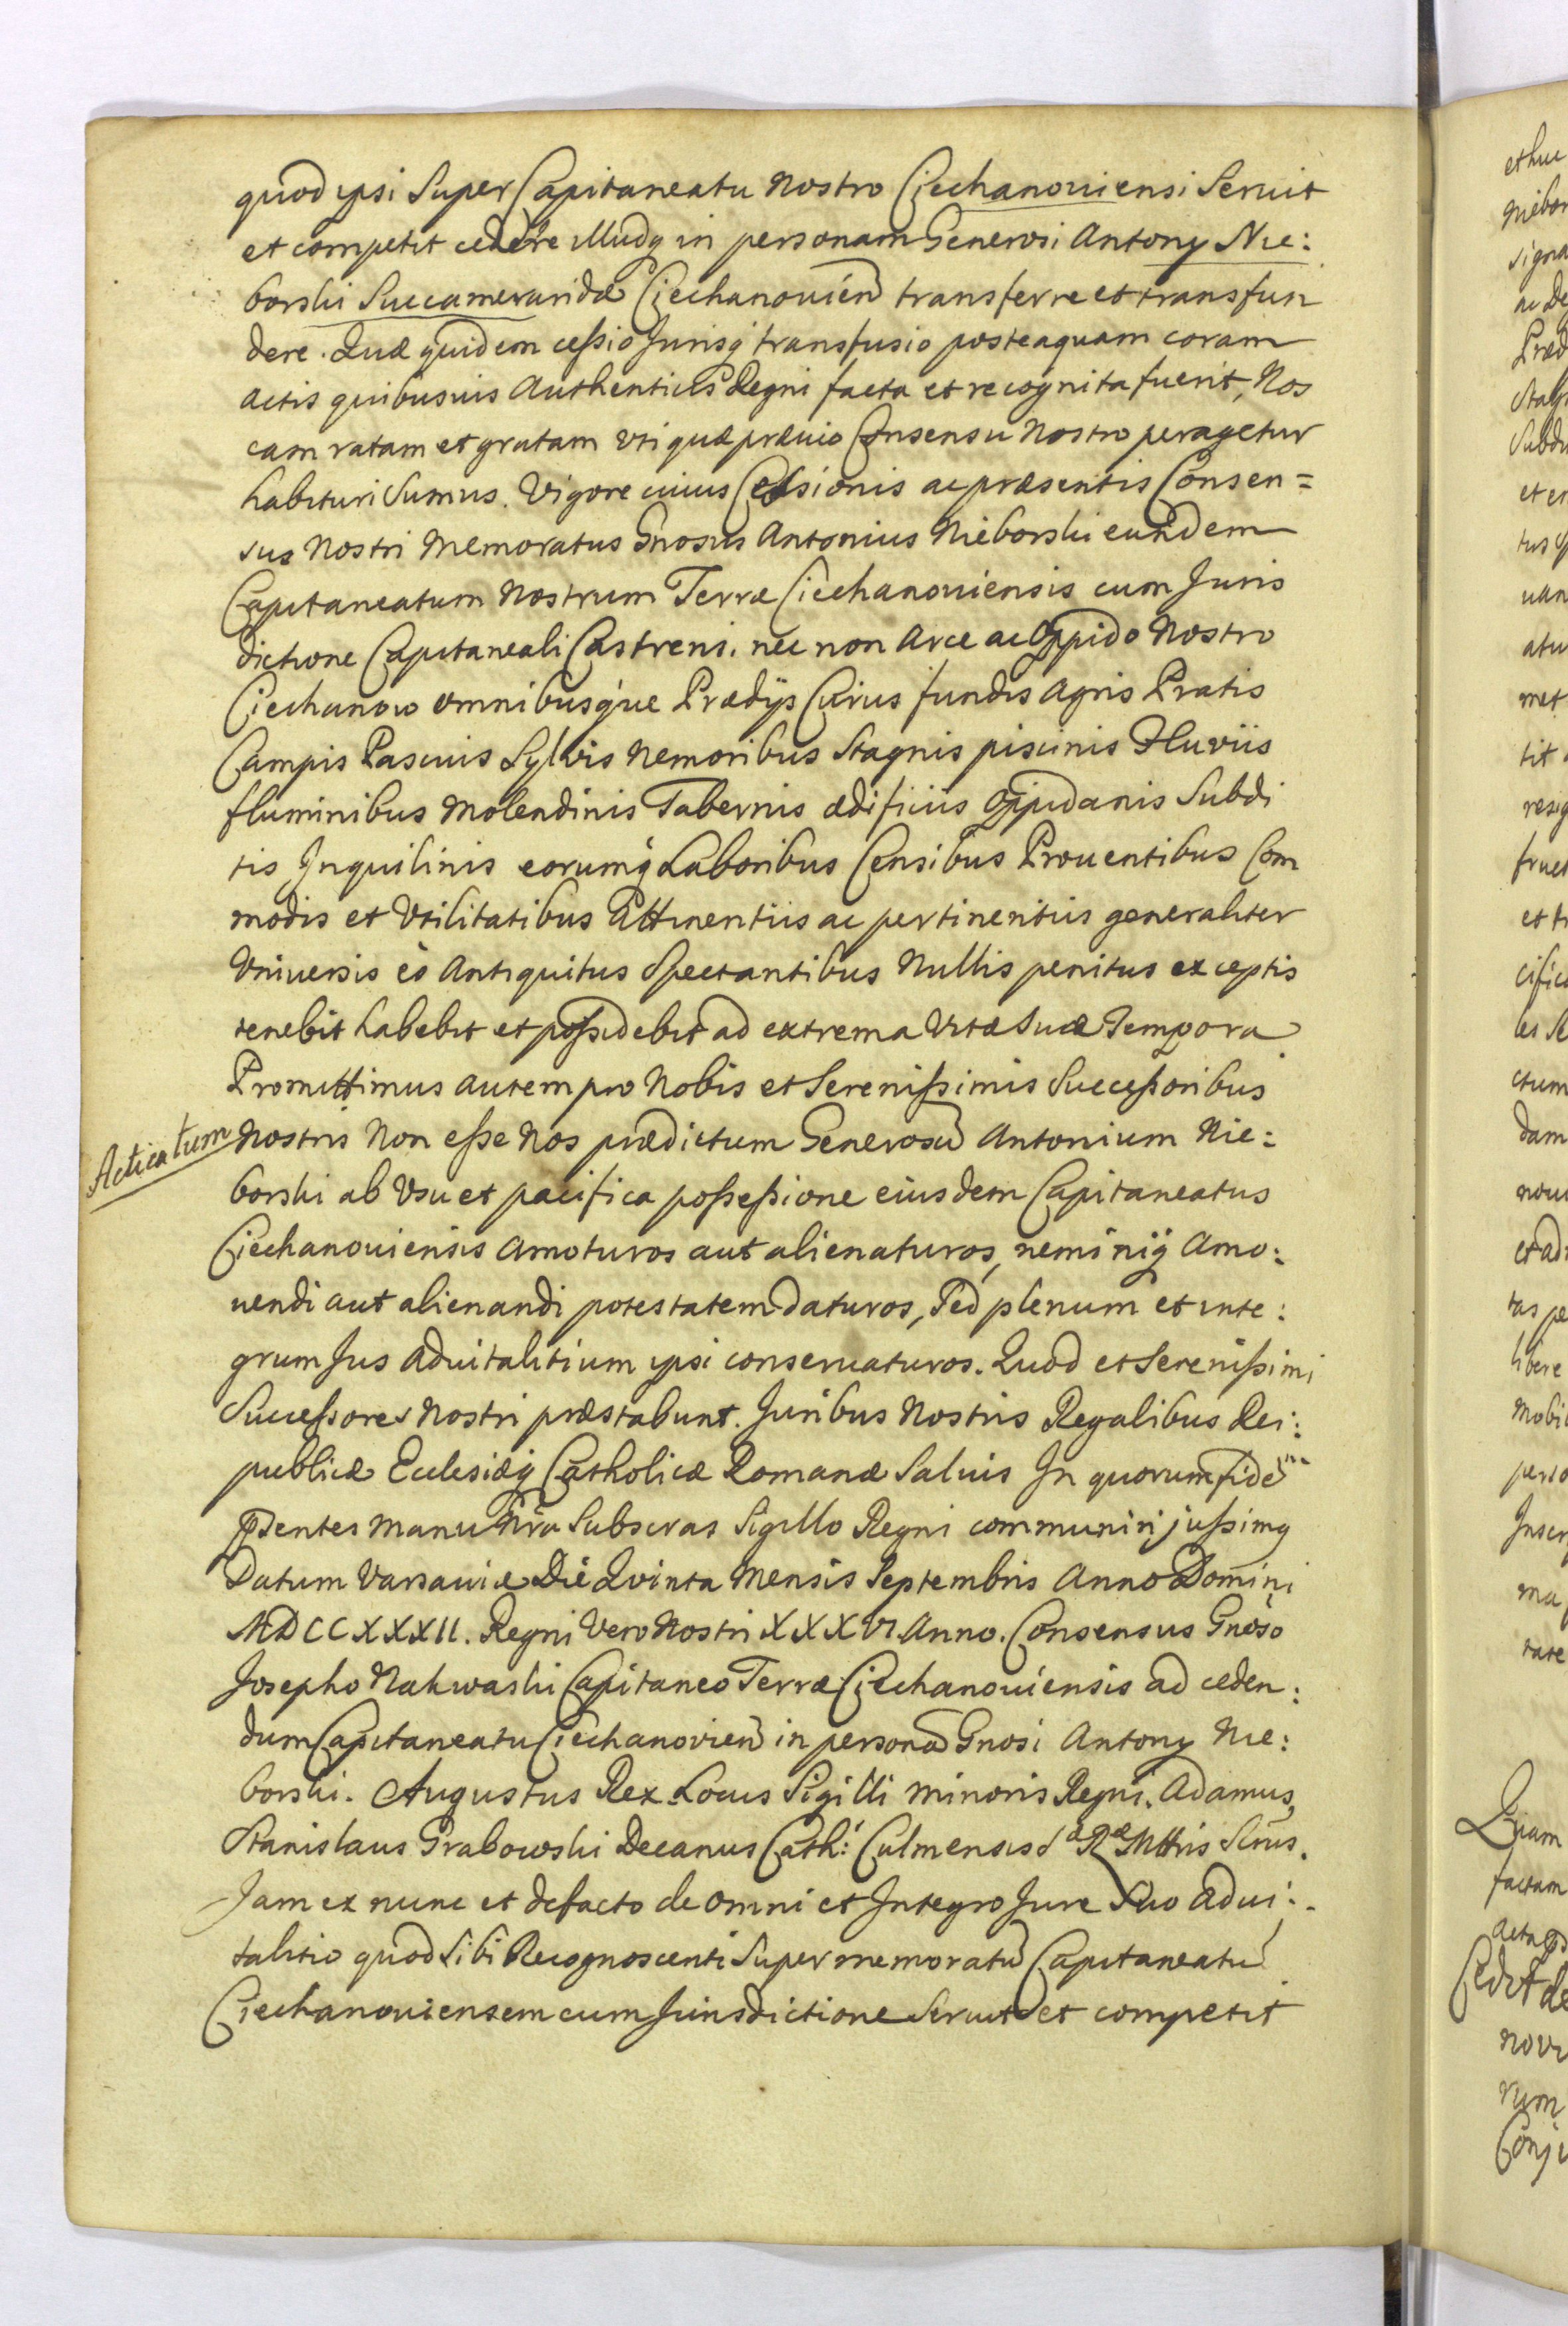 quod ipsi Super Capitaneatu Nostro Ciechanoviensi Servit
et competit cedere illudq in personam Generosi Antony Nie:
borski Succamerarida Ciechanovien transferre et transfun
dere. Quæ quidem cessio Jurisq transfusio posteaquam coram
actis quibusvis Authenticis Regni facta et recognita fuerit, Nos
eam ratam et gratam uti quæ prævio Consensu Nostro peragetur
habituri Sumus. Vigore cuius Cessionis ac præsentis Consen=
sus Nostri Memoratus Gnosus Antonius Nieborski eundem
Capitaneatum Nostrum Terræ Ciechanoviensis cum Juris
dictione Capitaneali Castrensi. nec non Arce ac Oppido Nostro
Ciechanow omnibusque Prædijs Curijs fundis Agris Pratis
Campis Pascuis Sylvis Nemoribus Stagnis piscinis Fluviis
fluminibus Molendinis Tabernis ædificiis Oppidanis Subdi
tis Inquilinis eorumq Laboribus Censibus Proventibus Com
modis et Vtilitatibus Attinentiis ac pertinentiis generaliter
Vniversis eò Antiquitus Spectantibus Nullis penitus exceptis
tenebit habebit et possidebit ad extrema Vitæ Suæ Tempora
Promittimus autem pro Nobis et Serenissimis Successoribus
Acticatum
Nostris Non esse Nos prædictum Generosū Antonium Nie:
borski ab Vsu et pacifica possessione eiusdem Capitaneatus
Ciechanoviensis Amoturos aut alienaturos, neminiq Amo:
uendi aut alienandi potestatem daturos, Sed plenum et inte:
grum Jus Advitalitium ipsi conservaturos. Quod et Serenissimi
Successores Nostri præstabunt. Juribus Nostris Regalibus Rei:
publicæ Ecclesiæq Catholicæ Romanæ Salvis In quorum fidem
pṡentes Manu Nrā Subscras Sigillo Regni communiri jussimq
Datum Varsaviæ Die Quinta Mensis Septembris Anno Domini
MDCCXXXII. Regni Vero Nostri XXXVI Anno. Consensus Gnoso
Josepho Nakwaski Capitaneo Terræ Ciechanoviensis ad ceden:
dum Capitaneatu Ciechanovien in personā Gnosi Antony Nie:
borski. Augustus Rex. Locus Sigilli minoris Regni. Adamus
Stanislaus Grabowski Decanus Cath: Culmensis Sæ Ræ Mttis Scrūs.
Jam ex nunc et defacto de omni et Integro Jure Suo Advi:
talitio quod Sibi Recognoscenti Super memoratū Capitaneatū
Ciechanoviensem cum Jurisdictione Servit et competit